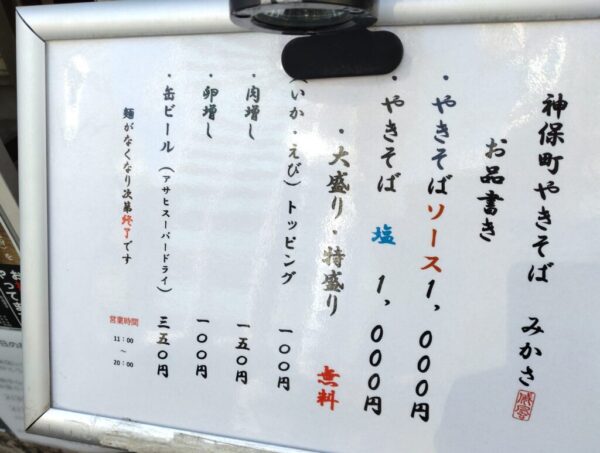 神保町やきそば　みかさ
お品書き
・やきそばソース1,000円
・やきそば　塩　1,000円
・大盛り・特盛り　無料
(いか・えび)トッピング　一〇〇円
・肉増し　一五〇円
・卵増し　一〇〇円
・缶ビール（アサヒスーパードライ）三五〇円
麺がなくなり次第終了です
営業時間
11：00
～
20：00